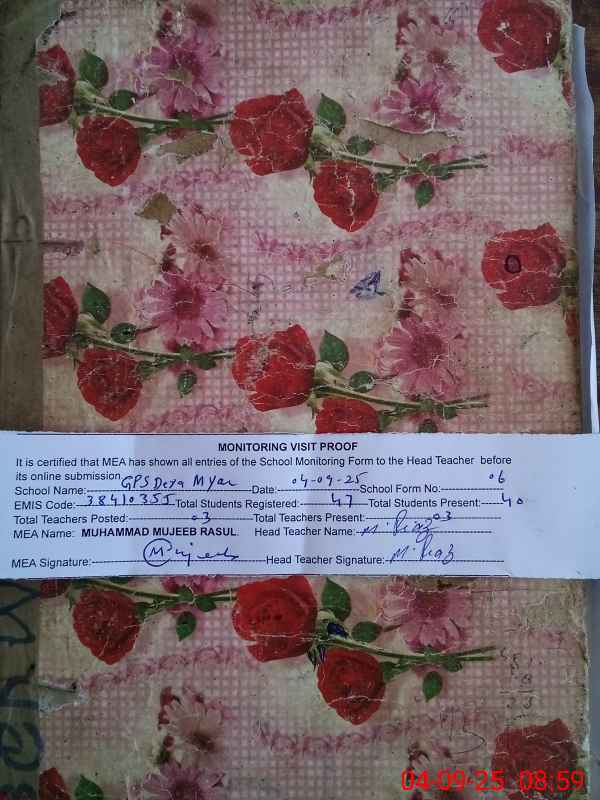 MONITORING VISIT PROOF
It is certified that MEA has shown all entries of the School Monitoring Form to the Head Teacher before
its online submission
School Name: GPS Dera Myar Date: 04-09-25 School Form No: 06
EMIS Code: 38410355 Total Students Registered: 47 Total Students Present: 40
Total Teachers Posted: 03 Total Teachers Present: 03
MEA Name: MUHAMMAD MUJEEB RASUL Head Teacher Name: M. Riaz
MEA Signature: Mujeeb Head Teacher Signature: M. Riaz
04-09-25 08:59